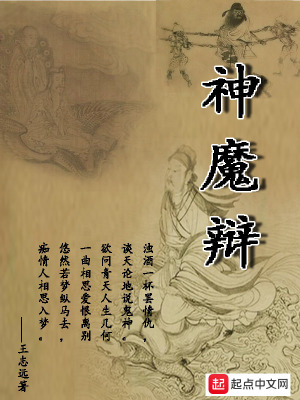 神魔辩
浊酒一杯罢情仇，
谈天论地说鬼神。
欲问青天人生几何
一曲相思爱恨离别
悠然若梦纵马去，
痴情人相思入梦。
——王志远著
起点中文网